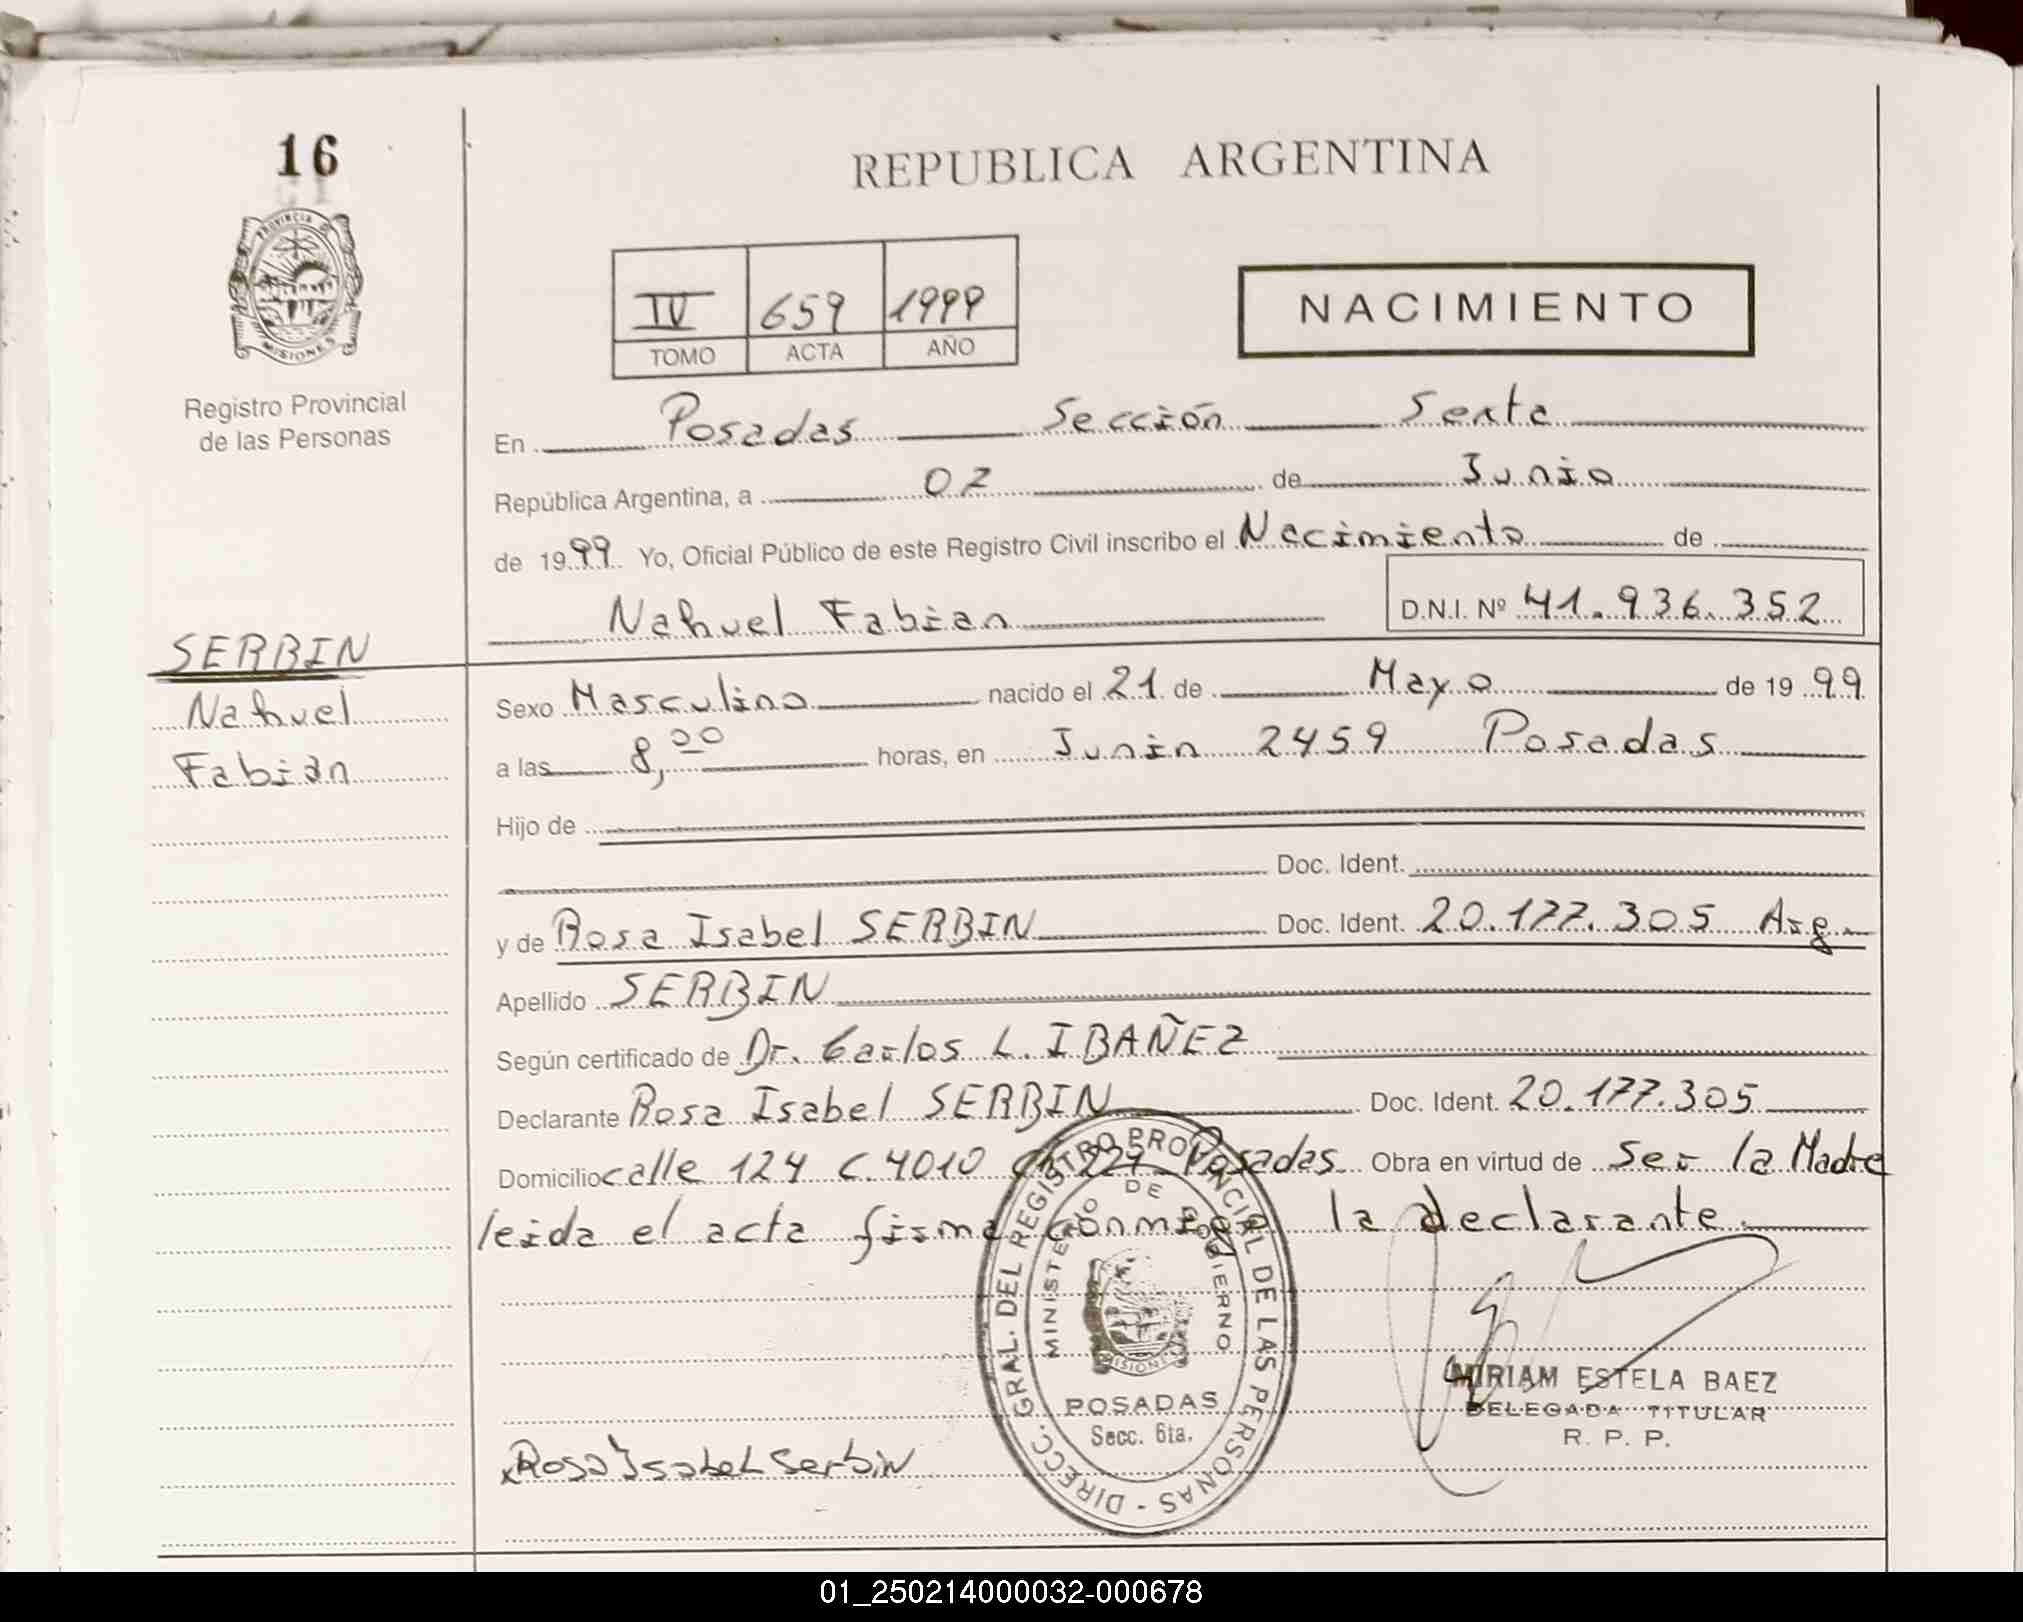 16
REPUBLICA ARGENTINA
PROVINCIA DE
MISIONES
IV 659 1999
TOMO ACTA AÑO
NACIMIENTO
Registro Provincial
de las Personas
En Posadas Sección Sexta
República Argentina, a 07 de Junio
de 1999 Yo, Oficial Público de este Registro Civil inscribo el Nacimiento de
Nahuel Fabian D.N.I. Nº 41.936.352
SERBIN
Nahuel
Fabián
Sexo Masculino nacido el 21 de Mayo de 1999
a las 8,00 horas, en Junin 2459 Posadas
Hijo de
Doc. Ident.
y de Rosa Isabel SERBIN Doc. Ident. 20.177.305 Arg.
Apellido SERBIN
Según certificado de Dr. Carlos L. IBAÑEZ
Declarante Rosa Isabel SERBIN Doc. Ident. 20.177.305
Domicilio calle 124 C. 4010 Posadas Obra en virtud de Ser la Madre
leida el acta firma conmigo la declarante
DIRECC. GRAL. DEL REGISTRO PROVINCIAL DE LAS PERSONAS -
MINISTERIO DE GOBIERNO
MISIONES
POSADAS
Secc. 6ta.
MIRIAM ESTELA BAEZ
DELEGADA TITULAR
R. P. P.
x Rosa Isabel Serbin
01_250214000032-000678